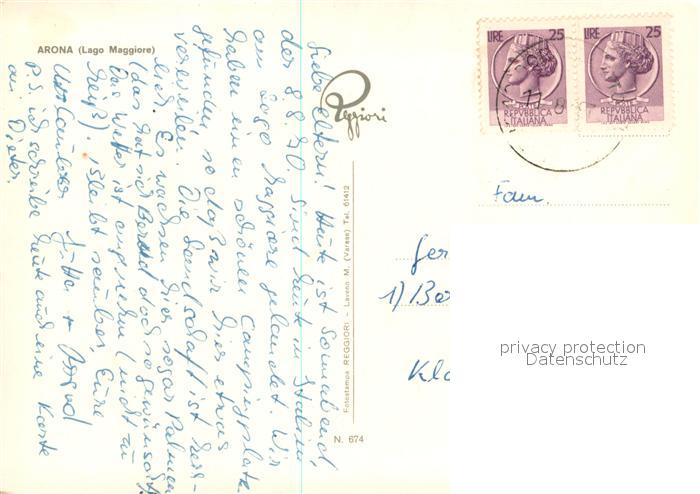 ARONA (Lago Maggiore)
Liebe Eltern! Heute ist Sonnabend,
der 8.8.70. Sind heute in Italien
am Lago Maggiore gelandet. Wir
haben einen schönen Campingplatz
gefunden, so daß wir hier etwas
verweilen. Die Landschaft ist herr-
lich. Es wachsen hier sogar Palmen
(das hat sich Bernd doch so gewünscht)
Das Wetter ist angenehm (nicht zu
heiß). Bleibt sauber, Eure
Jutta +
P.S. ich schreibe heute auch eine Karte
an Dieter.
Reggiori
Fotostampa REGGIORI - Laveno M. (Varese) Tel. 61412
N. 674
LIRE 25
REPVBBLICA
ITALIANA
LIRE 25
REPVBBLICA
ITALIANA
Fam.
Ger
1) Be
Klo
privacy protection
Datenschutz